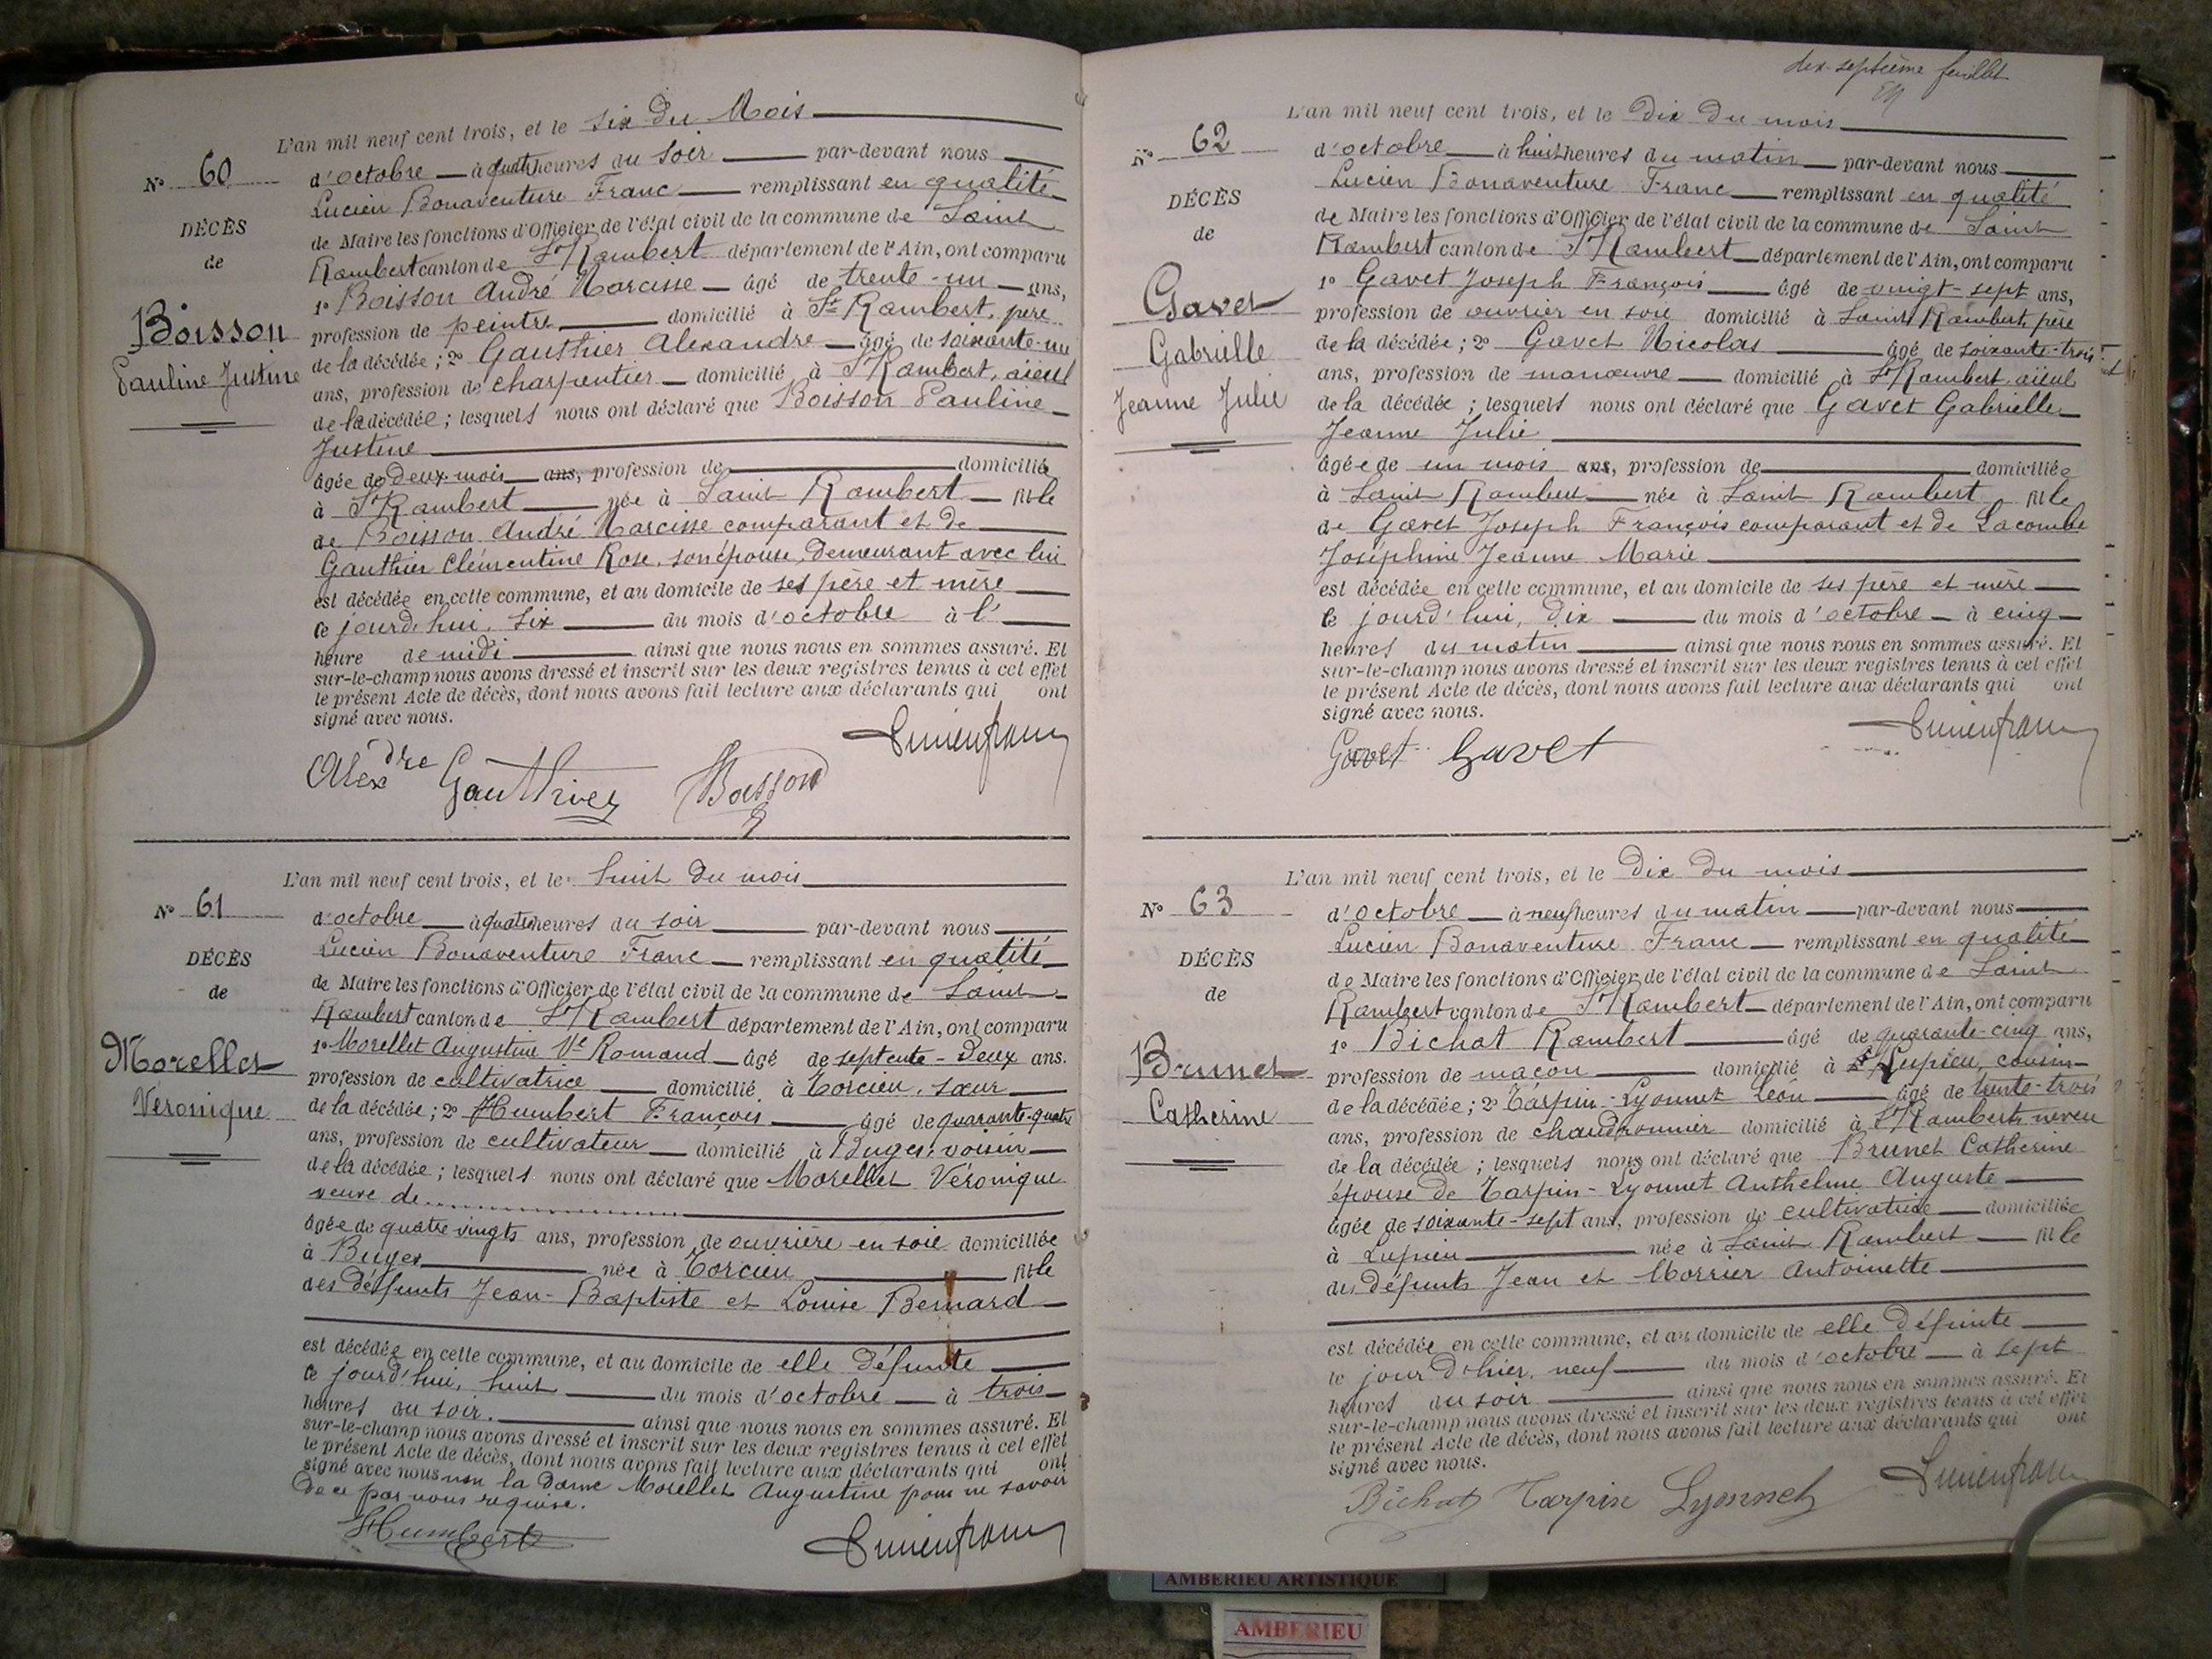 L'an mil neuf cent trois, et le six du Mois
N° 60
d'octobre à quatre heures du soir par-devant nous
Lucien Bonaventure Franc remplissant en qualité
DÉCÈS
de Maire les fonctions d'Officier de l'état civil de la commune de Saint
de
Rambert canton de St Rambert département de l'Ain, ont comparu
1° Boisson André Narcisse âgé de trente-un ans,
Boisson
profession de peintre domicilié à St Rambert, père
Pauline Justine
de la décédée; 2° Gauthier Alexandre âgé de soixante-un
ans, profession de charpentier domicilié à St Rambert, aïeul
de la décédée; lesquels nous ont déclaré que Boisson Pauline
Justine
âgée de deux mois ans, profession de domiciliée
à St Rambert née à Saint Rambert fille
de Boisson André Narcisse comparant et de
Gauthier Clémentine Rose, son épouse, demeurant avec lui
est décédée en cette commune, et au domicile de ses père et mère
ce jourd'hui, six du mois d'octobre à l'
heure de midi ainsi que nous nous en sommes assuré. Et
sur-le-champ nous avons dressé et inscrit sur les deux registres tenus à cet effet
le présent Acte de décès, dont nous avons fait lecture aux déclarants qui ont
signé avec nous.
Alexdre Gauthier Boisson Lucien Franc
L'an mil neuf cent trois, et le huit du mois
N° 61
d'octobre à quatre heures du soir par-devant nous
Lucien Bonaventure Franc remplissant en qualité
DÉCÈS
de Maire les fonctions d'Officier de l'état civil de la commune de Saint
de
Rambert canton de St Rambert département de l'Ain, ont comparu
1° Morellet Augustine Ve Romand âgé de septente-deux ans.
Morellet
profession de cultivatrice domicilié à Torcieu, sœur
Véronique
de la décédée; 2° Humbert François âgé de quarante-quatre
ans, profession de cultivateur domicilié à Buges, voisin
de la décédée; lesquels nous ont déclaré que Morellet Véronique
veuve de..................
âgée de quatre vingts ans, profession de ouvrière en soie domiciliée
à Buges née à Torcieu fille
des défunts Jean-Baptiste et Louise Bernard
est décédée en cette commune, et au domicile de elle défunte
ce jourd'hui, huit du mois d'octobre à trois
heures du soir. ainsi que nous nous en sommes assuré. Et
sur-le-champ nous avons dressé et inscrit sur les deux registres tenus à cet effet
le présent Acte de décès, dont nous avons fait lecture aux déclarants qui ont
signé avec nous non la dame Morellet Augustine pour ne savoir
de ce par nous requise.
Humbert Lucien Franc
dix-septième feuillet
L'an mil neuf cent trois, et le Dix du mois
N° 62
d'octobre à huit heures du matin par-devant nous
Lucien Bonaventure Franc remplissant en qualité
DÉCÈS
de Maire les fonctions d'Officier de l'état civil de la commune de Saint
de
Rambert canton de St Rambert département de l'Ain, ont comparu
1° Gavet Joseph François âgé de vingt-sept ans,
Gavet
profession de ouvrier en soie domicilié à Saint Rambert, père
Gabrielle
de la décédée; 2° Gavet Nicolas âgé de soixante-trois
ans, profession de manœuvre domicilié à St Rambert, aïeul
Jeanne Julie
de la décédée; lesquels nous ont déclaré que Gavet Gabrielle
Jeanne Julie
âgée de un mois ans, profession de domiciliée
à Saint Rambert née à Saint Rambert fille
de Gavet Joseph François comparant et de Lacombe
Joséphine Jeanne Marie
est décédée en cette commune, et au domicile de ses père et mère
ce jourd'hui, dix du mois d'octobre à cinq
heures du matin ainsi que nous nous en sommes assuré. Et
sur-le-champ nous avons dressé et inscrit sur les deux registres tenus à cet effet
le présent Acte de décès, dont nous avons fait lecture aux déclarants qui ont
signé avec nous.
Gavet Gavet Lucien Franc
L'an mil neuf cent trois, et le Dix du mois
N° 63
d'octobre à neuf heures du matin par-devant nous
Lucien Bonaventure Franc remplissant en qualité
DÉCÈS
de Maire les fonctions d'Officier de l'état civil de la commune de Saint
de
Rambert canton de St Rambert département de l'Ain, ont comparu
1° Bichat Rambert âgé de quarante-cinq ans,
Brunet
profession de maçon domicilié à Lupieu, cousin
Catherine
de la décédée; 2° Tarpin-Lyonnet Léon âgé de trente-trois
ans, profession de chaudronnier domicilié à St Rambert, neveu
de la décédée; lesquels nous ont déclaré que Brunet Catherine
épouse de Tarpin-Lyonnet Anthelme Auguste
âgée de soixante-sept ans, profession de cultivatrice domiciliée
à Lupieu née à Saint Rambert fille
des défunts Jean et Morrier Antoinette
est décédée en cette commune, et au domicile de elle défunte
le jour d'hier, neuf du mois d'octobre à sept
heures du soir ainsi que nous nous en sommes assuré. Et
sur-le-champ nous avons dressé et inscrit sur les deux registres tenus à cet effet
le présent Acte de décès, dont nous avons fait lecture aux déclarants qui ont
signé avec nous.
Bichat Tarpin Lyonnet Lucien Franc
AMBERIEU ARTISTIQUE
AMBERIEU